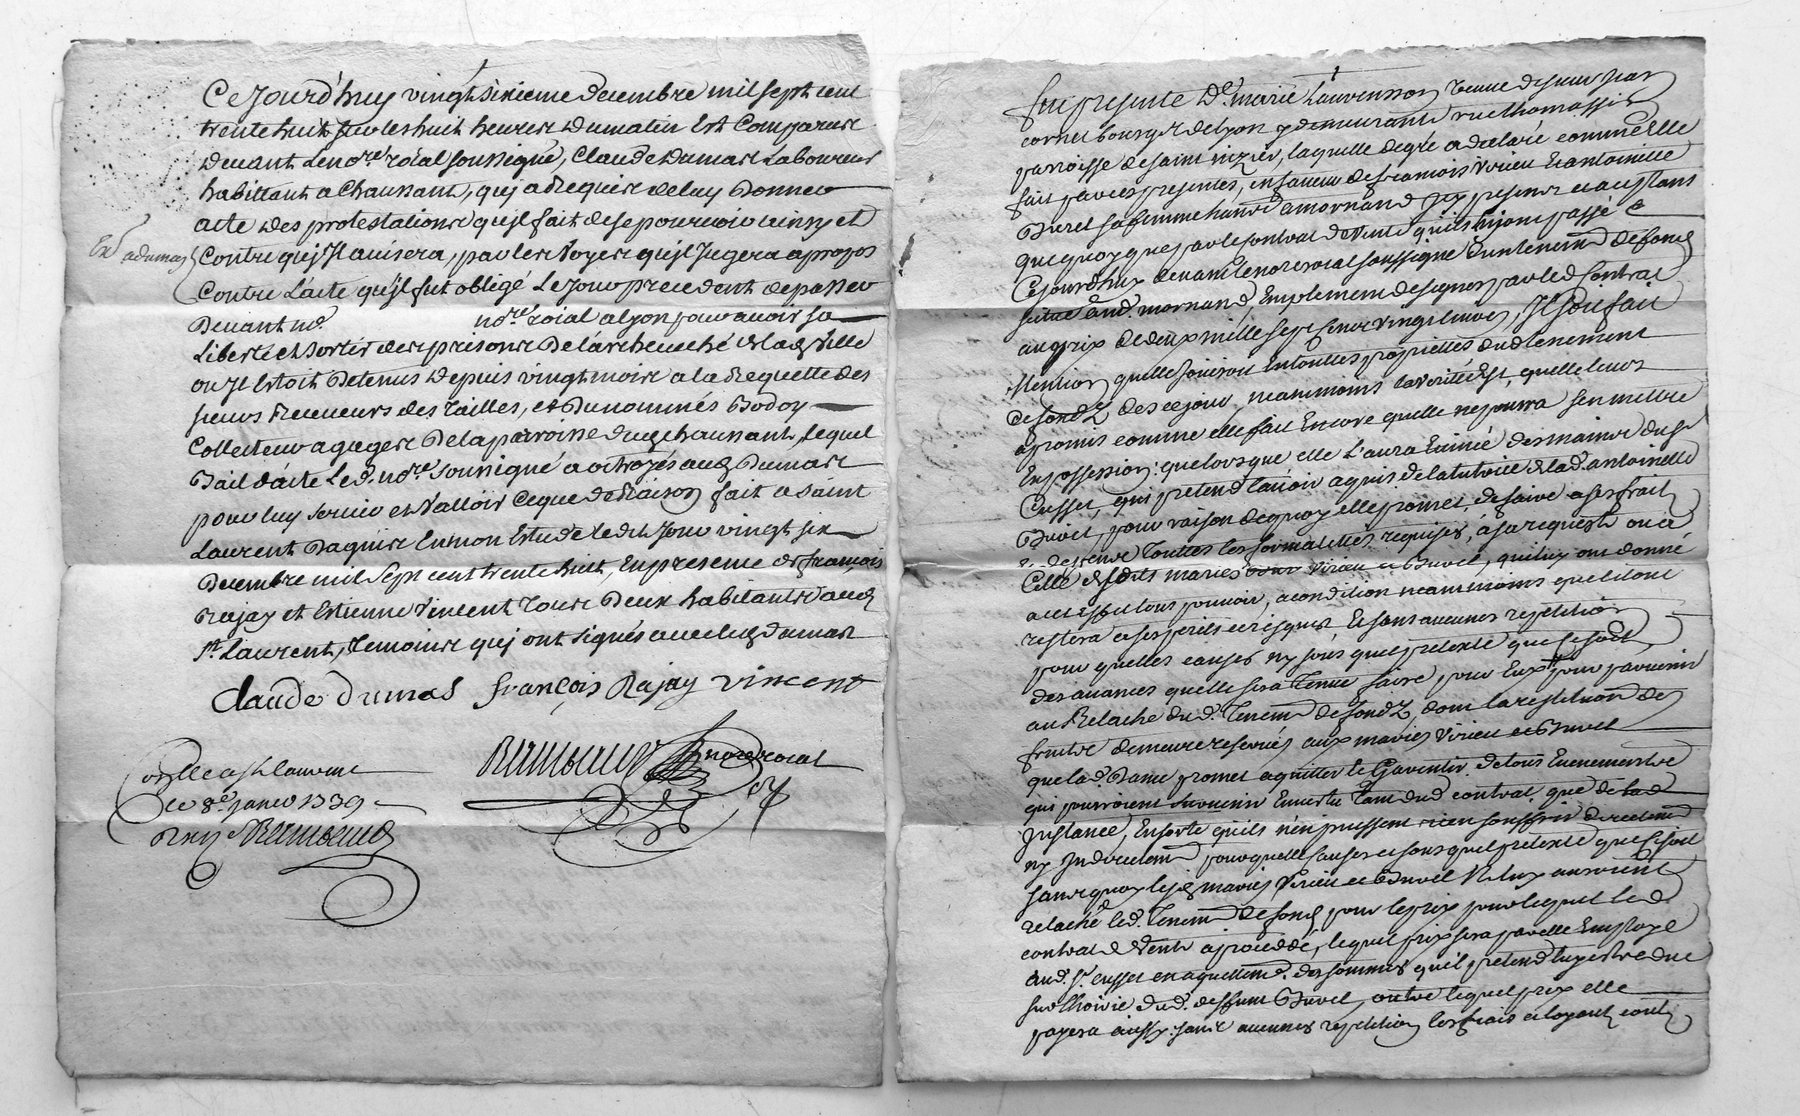 Ce Jourd'huy vingt sixieme decembre mil sept cent
trente huit sur les huit heures du matin Est Comparu
devant Le no.re roial soussigné, Claude Dumas Laboureur
habittant a Chaussant, quj a Requis de luy Donner
acte des protestations qu'jl fait de se pourvoir ainsy et
Contre quj Jl avisera, par les voyes qu'jl Jugera apropos
Contre L'acte qu'jl fut obligé Le Jour precedent de passer
Devant m.e no.re roial a lyon pour avoir sa
Liberté et sortir des prisons De l'archeveché de lad. ville
ou jl Estoit Detenus Depuis vingt mois a la Requette des
sieurs Receveurs des Tailles, et Du nommés Bodoy
Collecteur a gages De la parroisse dud. chaussant, lequel
Dait d'acte Led. no.re soussigné a octroyés aud. Dumas
pour luy servir et valloir Ce que de Raison fait a saint
Laurent Dagnis En mon Estude ledit Jour vingt six
Decembre mil sept cent trente huit, En presence de françois
Rajay et Estienne Vincent Tous Deux habitants aud.
St. Laurent, Temoins quj ont signés avec led. dumas
Claude Dumas françois Rajay vincent
no.re roial
a St Laurent
le 8e janv. 1739
fut presente De. marie Lauvensson veuve de sieur jean
cornet bourg.s de Lyon y demeurante rue thomassin
parroisse de saint nizier, laquelle de gré a declaré comme Elle
fait par ces presentes, en faveur de francois virieu Et antoinette
Buvet sa femme de mornand jcy presents et acceptans
que quoyque par le contrat de vente qu'ils luj ont passé
Cejourd'huy devant le no.re roial soussigné d'un tenement de fond
situé aud. mornand, Emplement designés par led. Contrat
au prix de deux mille sept cent vingt livres, Jl soit fait
Mention quelle jouiroit En touttes proprietés dud. tenement
de fondz des ce jour neanmoins la verité Est, quelle leurs
a promis comme elle fait Encore quelle ne poura s'en mettre
En possession que lors que elle L'aura Evincé des mains du sr.
Cusset, qui pretend L'avoir aquis de la tutrice de lad. antoinette
Buvet, pour raison de quoy elle promet, de faire a ses frais
Touttes les formalittés requises, a sa requeste ou a
Celle desdits mariés virieu et Buvet, qui luy ont donné
a cet effet tous pouvoir, a condition neanmoins que le tout
restera a ses perils et risques, Et sans aucunes repetition
pour quelles causes ny sous quel pretexte que ce soit
des avances quelle sera Tenue faire pour Eux pour parvenir
au Relache dud. Tenem.t de fondz, dont la restitution des
fruits demeure reservés aux mariés virieu et Buvet
que lad. Dame promet aquitter Et Garentir de tous Evenements
qui pourroient survenir Ensuitte Tant dud. contrat que de lad.
Jnstance, En sorte qu'ils n'en puissent rien souffrir directem.t
ny Indirectem.t pour quelle causes et sous quel pretexte que ce soit
sans quoy lesd. mariés virieu et Buvet
relaché led. Tenem.t de fond pour le prix pour lequel led.
contrat de vente a procedé, lequel prix sera par elle Employé
aud. sr. cusset en aquittem.t des sommes qu'il pretend
sur l'hoirie dud. deffunt Buvet, outre lequel prix elle
payera aussy sans aucunes repetition les frais et loyaux couts